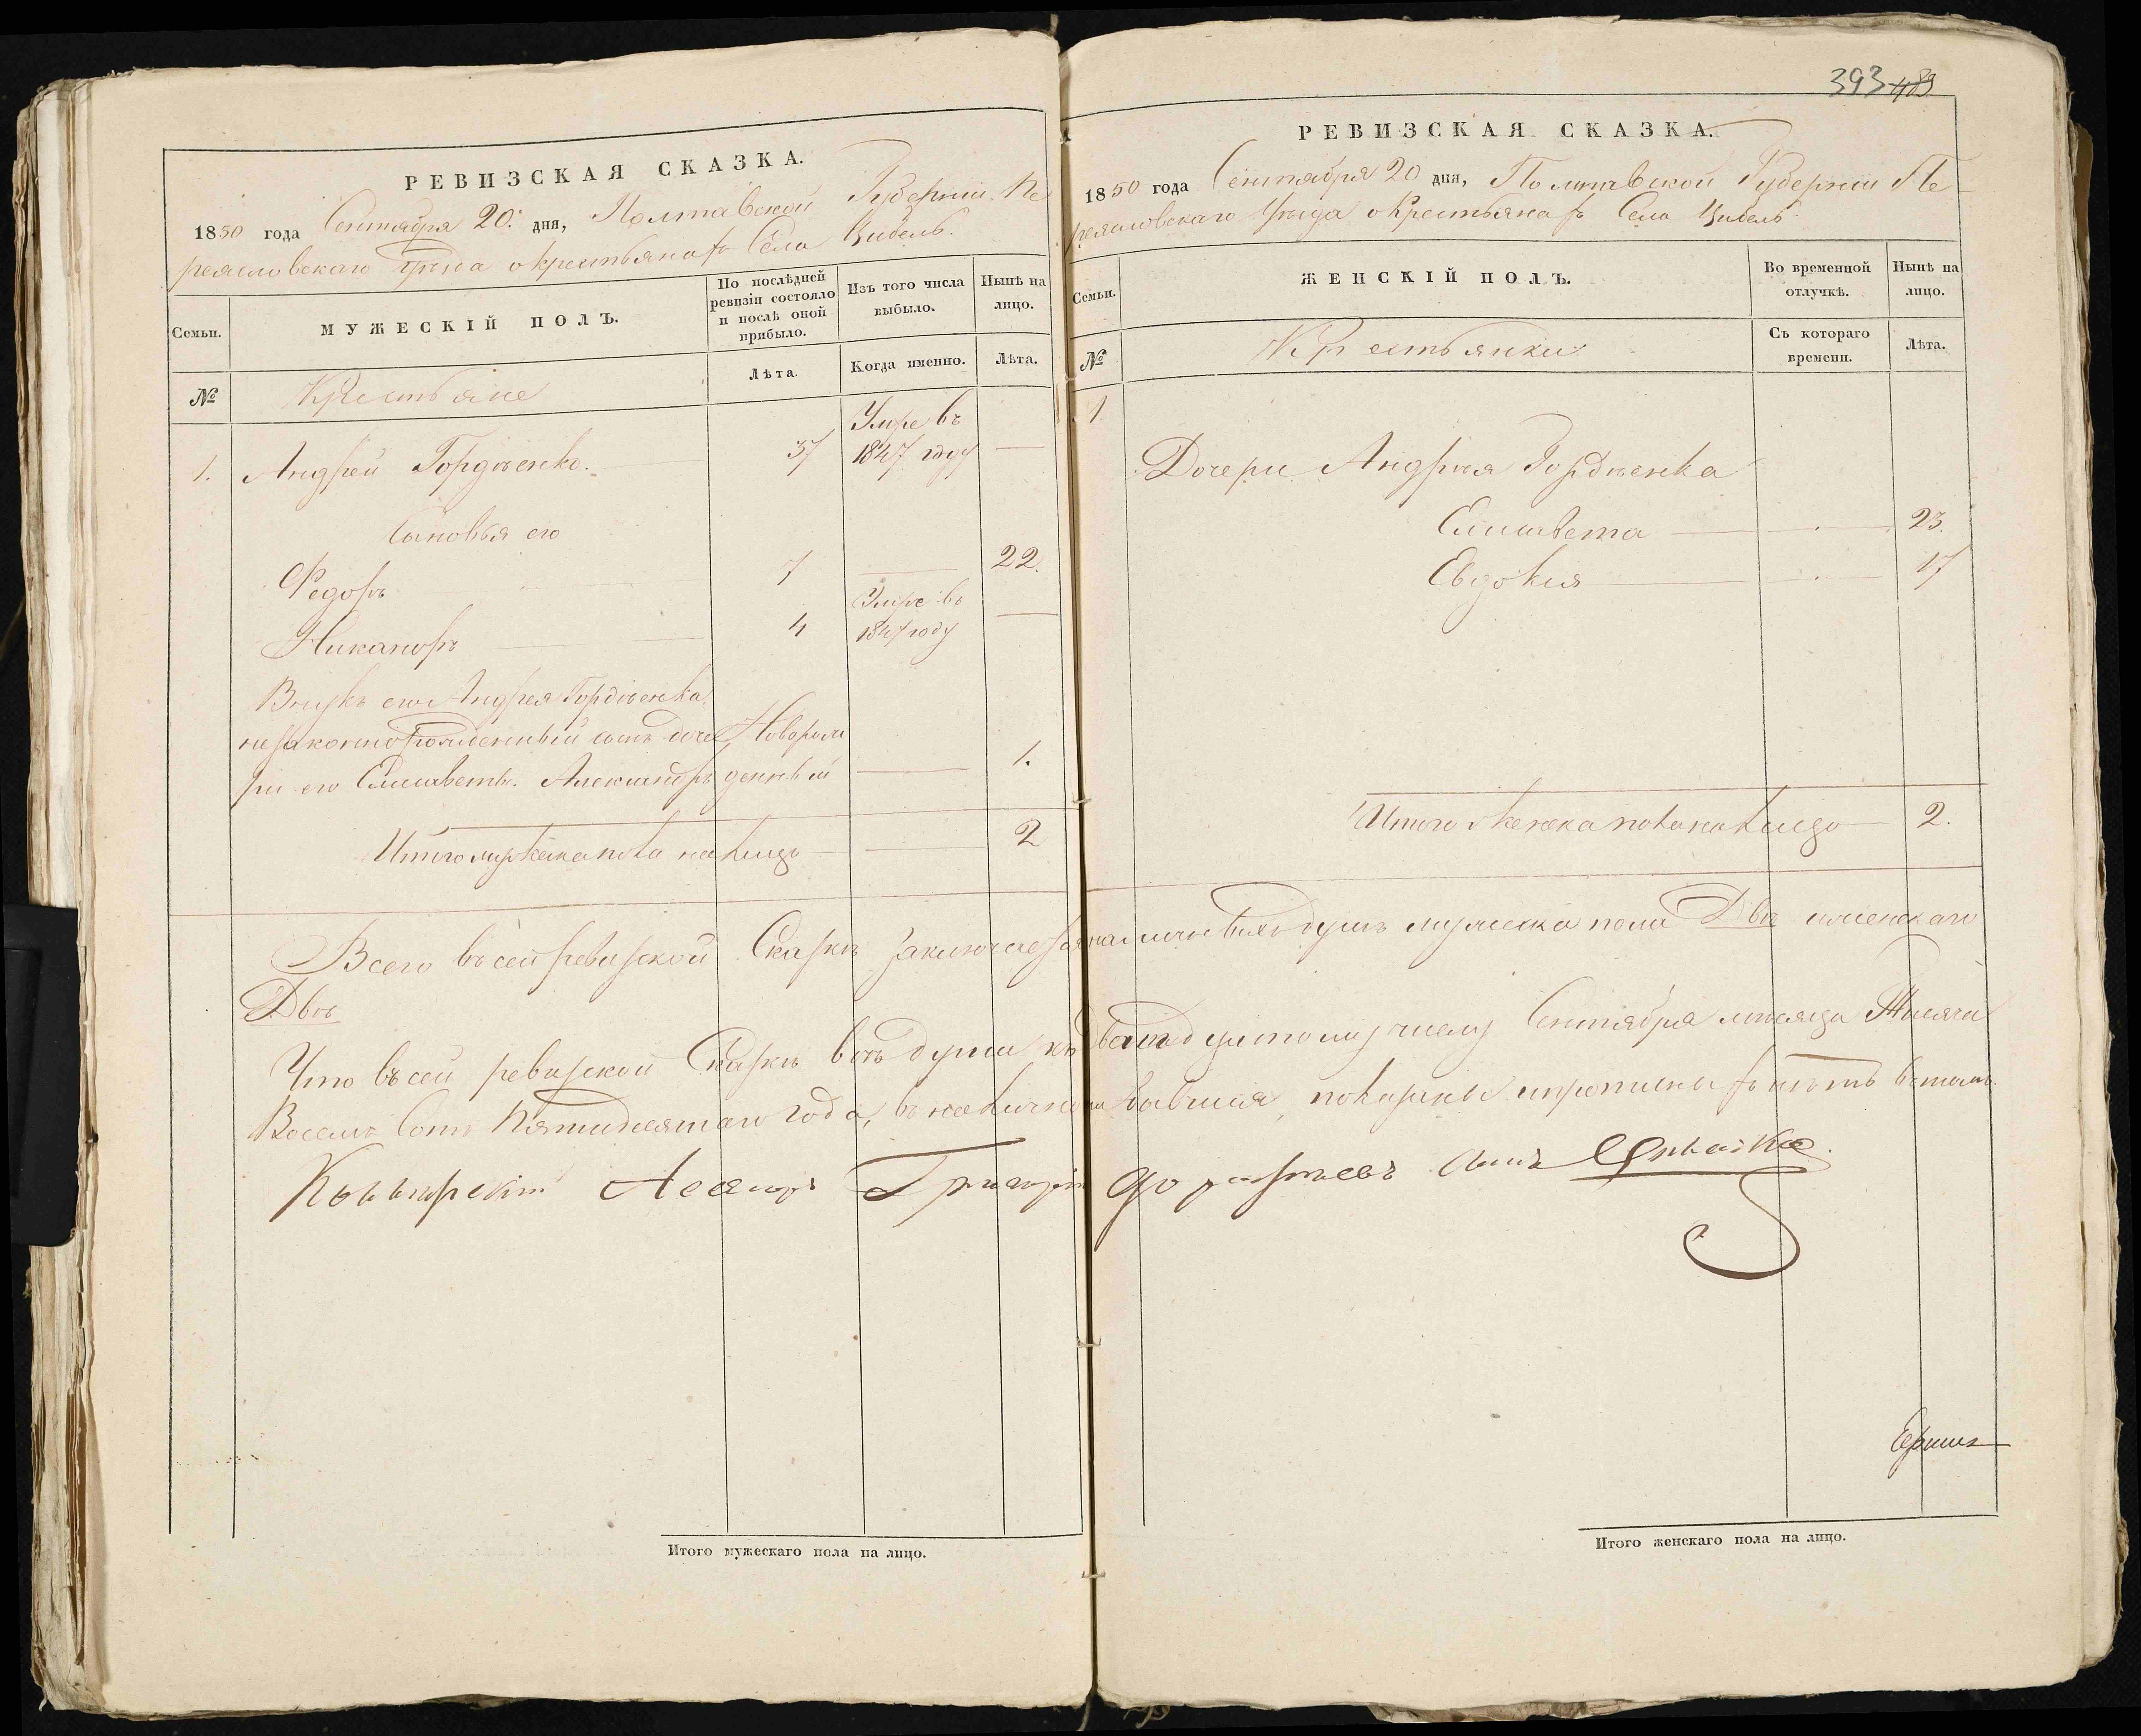 РЕВИЗСКАЯ СКАЗКА.
1850 года Сентября 20. дня, Полтавской Губернии Пе
реясловскаго Уѣзда о крестьянахъ Села Цибель.
Семьи.
МУЖЕСКІЙ ПОЛЪ.
По послѣдней ревизіи состояло и послѣ оной прибыло.
Изъ того числа выбыло.
Нынѣ на лицо.
№
Крестьяне
Лѣта.
Когда именно.
Лѣта.
1. Андрей Гордѣенко. 37 Умре въ 1847 году —
Сыновья его
Федоръ 7 — 22.
Никаноръ 4 Умре въ 1847 году —
Внукъ его Андрея Гордѣенка,
незаконнорожденный сынъ доче
ри его Елисаветы. Александръ
Новорож
денный — 1.
Итого мужеска пола на лицо 2
393 483
РЕВИЗСКАЯ СКАЗКА.
1850 года Сентября 20 дня, Полтавской Губернии Пе
реясловскаго Уѣзда о крестьянахъ Села Цибель.
Семьи.
ЖЕНСКІЙ ПОЛЪ.
Во временной отлучкѣ.
Нынѣ на лицо.
№
Крестьянки
Съ котораго времени.
Лѣта.
1.
Дочери Андрея Гордѣенка
Елисавета — 23.
Евдокия — 17
Итого женска пола на лицо 2.
Всего въ сей ревизской Сказкѣ заключается наличныхъ душъ мужеска пола Двѣ и женскаго
Двѣ
Что въ сей ревизской Сказкѣ всѣ души къ двадцатому числу Сентября мѣсяца Тысяча
Восемь Сотъ Пятидесятаго года, въ наличности бывшия, показаны и прописныхъ нѣтъ въ томъ
Коллежскій Асесоръ Григорій сынъ
Итого мужескаго пола на лицо.
Итого женскаго пола на лицо.